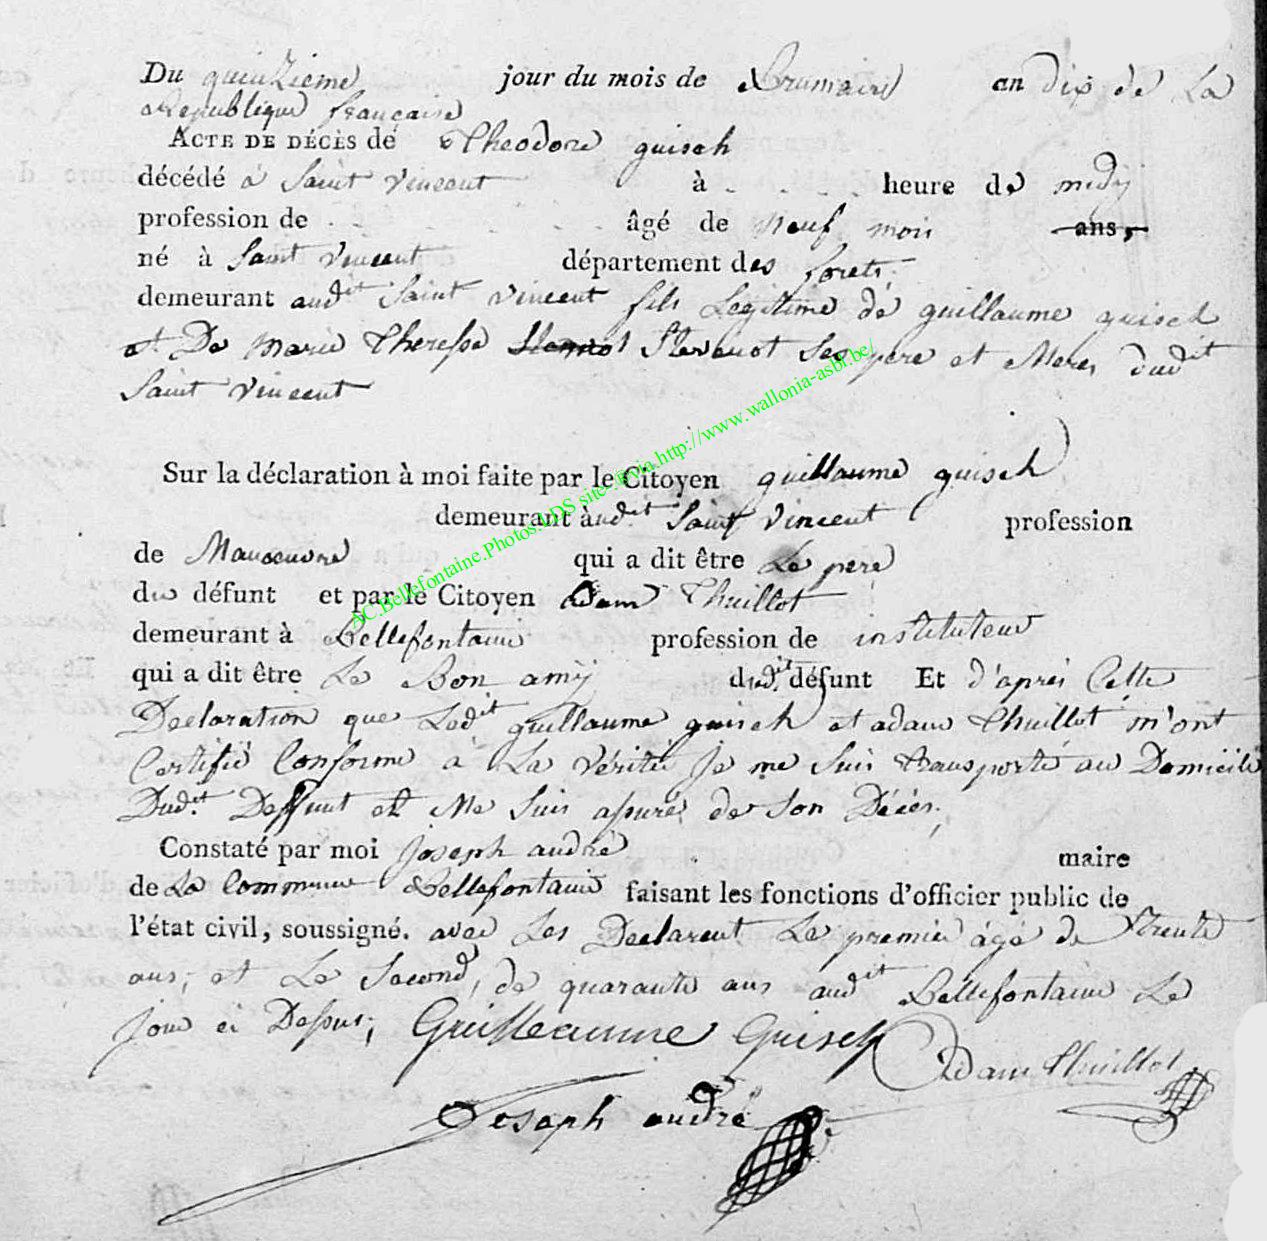 Du quinzieme jour du mois de Brumaire an dix de La
Republique francaise
ACTE DE DÉCÈS de Theodore guisch
décédé à Saint vincent à . . . . heure de midy
profession de . . . . . . âgé de Neuf mois ans,
né à Saint vincent département des forets
demeurant audit Saint vincent fils Legitime de guillaume guisch
et De marie Theresse Stevenot Ses pere et Mere, dudit
Saint vincent
Sur la déclaration à moi faite par le Citoyen guillaume guisch
demeurant àudit Saint vincent profession
de Manoeuvre qui a dit être Le pere
du défunt et par le Citoyen Adam Thuillot
demeurant à Bellefontaine profession de instituteur
qui a dit être Le Bon amÿ dudit défunt Et d'aprés Cette
Declaration que Ledit guillaume guisch et adam Thuillot m'ont
Certifié Conforme à La vérité Je me Suis transporté au Domicile
Dudit Deffunt et Me Suis assuré de Son Décés,
Constaté par moi Joseph andré maire
de La Commune Bellefontaine faisant les fonctions d'officier public de
l'état civil, soussigné. avec Les Declarent Le premier âgé de Trente
ans, et Le Second, de quarante ans audit Bellefontaine Le
Jour ci Dessus,
Guilleaume Guisch
Adam Thuillot
Joseph andré
AC.Bellefontaine.Photos.ADS site-@via.http://www.wallonia-asbl.be/